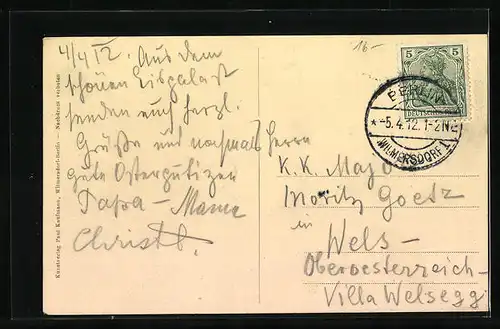 4/4 12. Aus dem
schönen Eispalast
senden euch herzl.
Grüße und nochmals
gute Osterputizen
Papa - Mama
Christl.
16-
5 5
DEUTSCHES
BERLIN
*-5.4.12.1-2N
WILMERSDORF 1
Herrn
K. K. Major
Moritz Goetz
in
Wels -
Oberoesterreich -
Villa Welsegg
Kunstverlag Paul Kaufmann, Wilmersdorf-Berlin — Nachdruck verboten